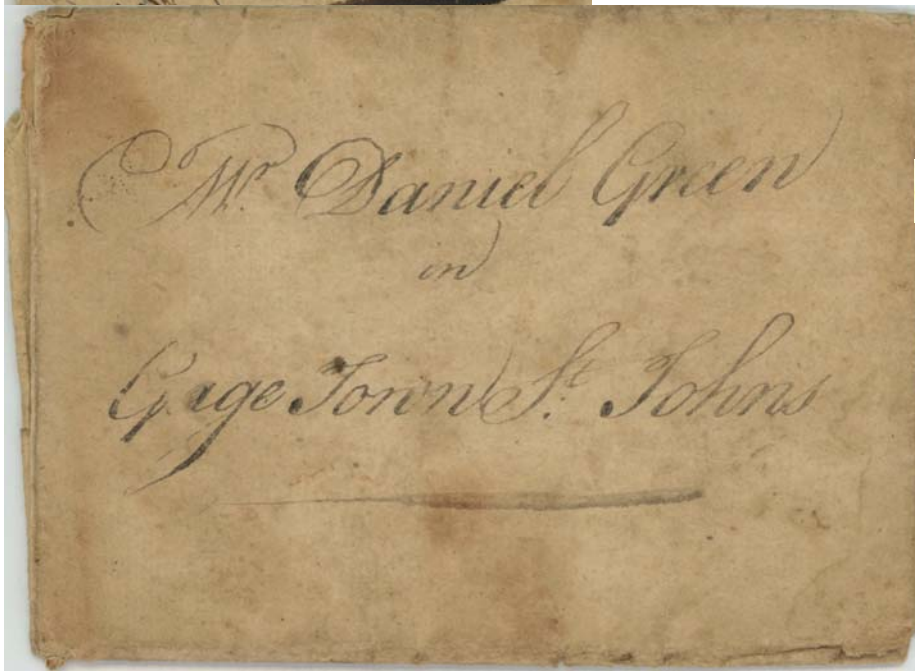 Mr. Daniel Green
in
Gage Town St. Johns